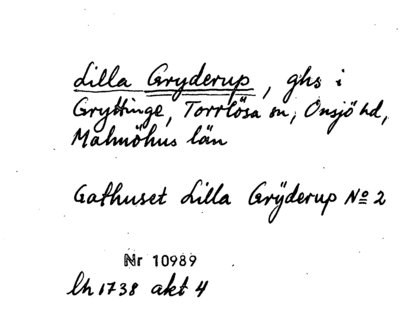 Lilla Gryderup, ghs i
Gryttinge, Torrlösa sn, Onsjö hd,
Malmöhus län
Gathuset Lilla Grÿderup No 2
Nr 10989
lh 1738 akt 4